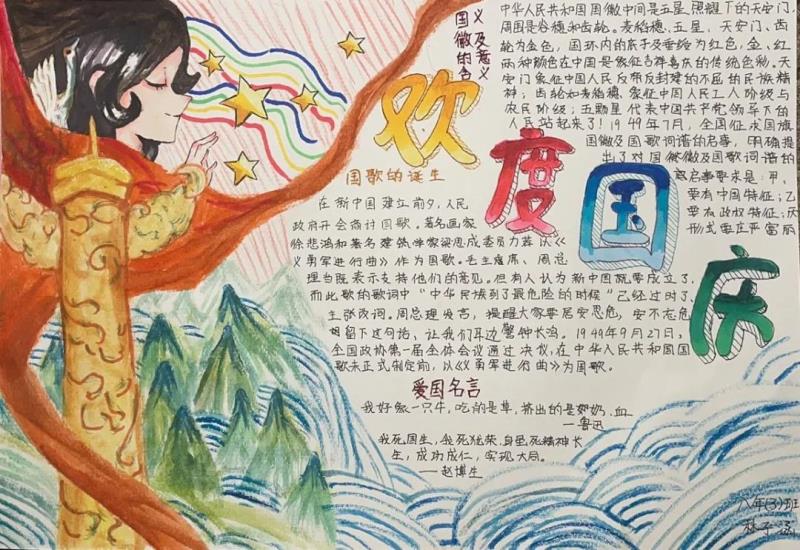 国徽的含
义及意义
中华人民共和国国徽中间是五星照耀下的天安门,
周围是谷穗和齿轮。麦稻穗、五星、天安门、齿
轮为金色,圆环内的底子及垂绶为红色,金、红
两种颜色在中国是象征吉祥喜庆的传统色彩。天
安门象征中国人民反帝反封建的不屈的民族精
神;齿轮和麦稻穗象征中国人民工人阶级与
农民阶级;五颗星代表中国共产党领导下的
人民站起来了!1949年7月,全国征求国旗
国徽及国歌词谱的启事,明确提
出了对国徽及国歌词谱的
启事要求是:甲,
要有中国特征;乙
要有政权特征;
形式要庄严富丽
欢度国庆
国歌的诞生
在新中国建立前夕,人民
政府开会商讨国歌。著名画家
徐悲鸿和著名建筑学家梁思成委员力荐以《
义勇军进行曲》作为国歌。毛主席、周总
理当既表示支持他们的意见。但有人认为新中国就要成立了,
而此歌的歌词中“中华民族到了最危险的时候”已经过时了,
主张改词。周总理发言,提醒大家要居安思危,安不忘危
留下这句话、让我们耳边警钟长鸣。1949年9月27日,
全国政协第一届全体会议通过决议,在中华人民共和国国
歌未正式制定前,以《义勇军进行曲》为国歌。
爱国名言
我好象一只牛,吃的是草,挤出的是奶、血
一鲁迅
我死国生,我死犹荣,身虽死精神长
生,成功成仁,实现大同。
——赵博生
八年(3)班
林子涵